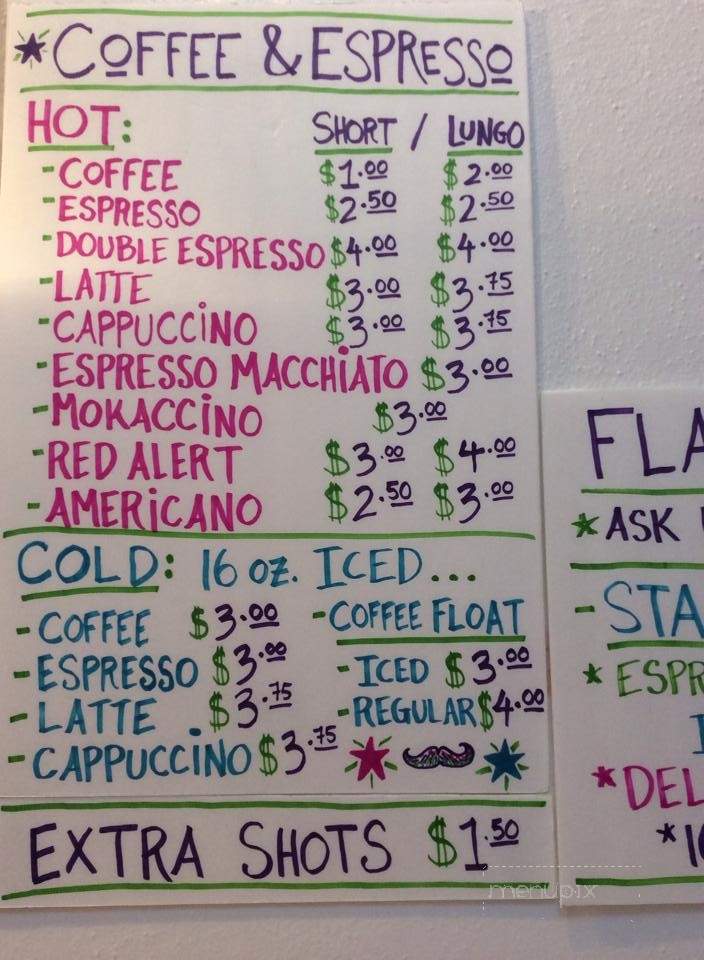 COFFEE & ESPRESSO
HOT: SHORT / LUNGO
- COFFEE $1.00 $2.00
- ESPRESSO $2.50 $2.50
- DOUBLE ESPRESSO $4.00 $4.00
- LATTE $3.00 $3.75
- CAPPUCCiNO $3.00 $3.75
- ESPRESSO MACCHiATO $3.00
- MOKACCiNO $3.00
- RED ALERT $3.00 $4.00
- AMERiCANO $2.50 $3.00
COLD: 16 oz. ICED...
- COFFEE $3.00
- ESPRESSO $3.00
- LATTE $3.75
- CAPPUCCiNO $3.75
- COFFEE FLOAT
- ICED $3.00
- REGULAR $4.00
EXTRA SHOTS $1.50
FLA
* ASK
- STA
* ESPR
* DEL
menupix